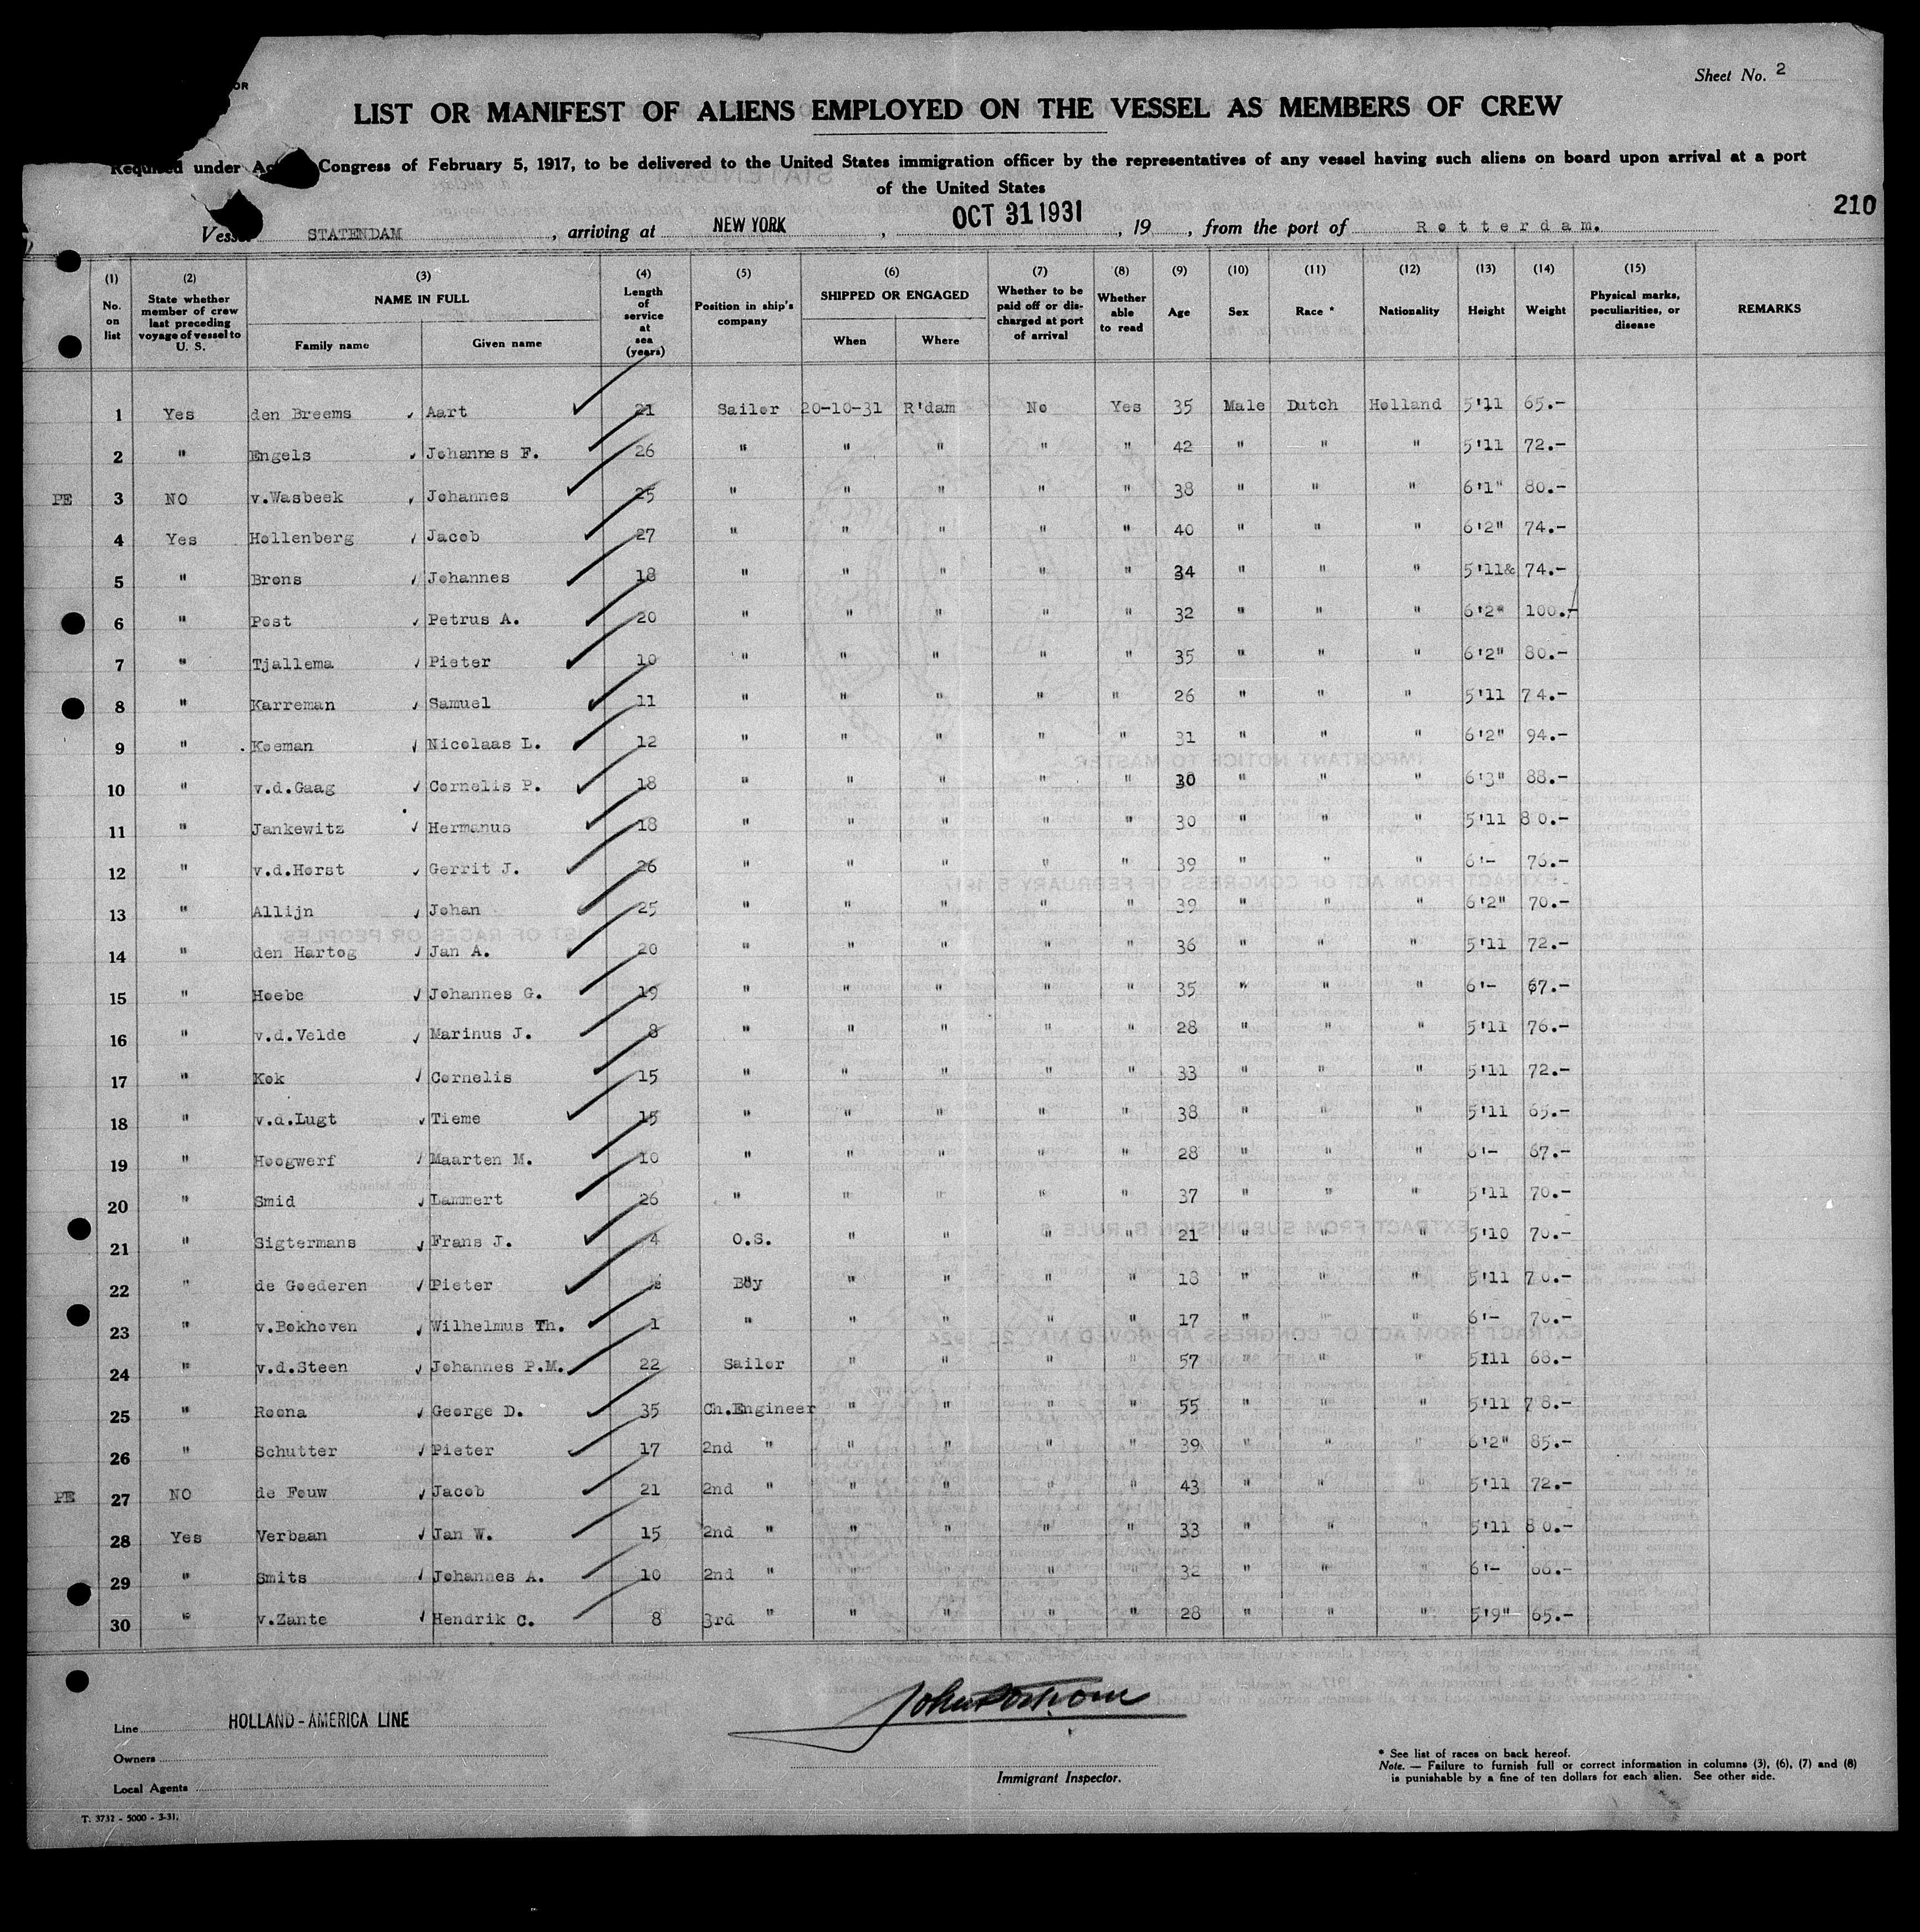 Sheet No. 2
LIST OR MANIFEST OF ALIENS EMPLOYED ON THE VESSEL AS MEMBERS OF CREW
Required under Ac Congress of February 5, 1917, to be delivered to the United States immigration officer by the representatives of any vessel having such aliens on board upon arrival at a port
of the United States
210
Vesse STATENDAM , arriving at NEW YORK , OCT 31 1931 , 19 , from the port of Rotterdam.
(1) No. on list (2) State whether member of crew last preceding voyage of vessel to U. S. (3) NAME IN FULL Family name Given name (4) Length of service at sea (years) (5) Position in ship's company (6) SHIPPED OR ENGAGED When Where (7) Whether to be paid off or discharged at port of arrival (8) Whether able to read (9) Age (10) Sex (11) Race * (12) Nationality (13) Height (14) Weight (15) Physical marks, peculiarities, or disease REMARKS
1 Yes den Breems Aart 21 Sailor 20-10-31 R'dam No Yes 35 Male Dutch Holland 5'11 65.-
2 " Engels Johannes F. 26 " " " " " 42 " " " 5'11 72.-
PE 3 NO v.Wasbeek Johannes 25 " " " " " 38 " " " 6'1" 80.-
4 Yes Hollenberg Jacob 27 " " " " " 40 " " " 6'2" 74.-
5 " Brons Johannes 18 " " " " " 34 " " " 5'11& 74.-
6 " Post Petrus A. 20 " " " " " 32 " " " 6'2" 100.-
7 " Tjallema Pieter 10 " " " " " 35 " " " 6'2" 80.-
8 " Karreman Samuel 11 " " " " " 26 " " " 5'11 74.-
9 " Koeman Nicolaas L. 12 " " " " " 31 " " " 6'2" 94.-
10 " v.d.Gaag Cornelis P. 18 " " " " " 30 " " " 6'3" 88.-
11 " Jankewitz Hermanus 18 " " " " " 30 " " " 5'11 80.-
12 " v.d.Horst Gerrit J. 26 " " " " " 39 " " " 6'- 76.-
13 " Allijn Johan 25 " " " " " 39 " " " 6'2" 70.-
14 " den Hartog Jan A. 20 " " " " " 36 " " " 5'11 72.-
15 " Hoebe Johannes G. 19 " " " " " 35 " " " 6'- 67.-
16 " v.d.Velde Marinus J. 8 " " " " " 28 " " " 5'11 76.-
17 " Kok Cornelis 15 " " " " " 33 " " " 5'11 72.-
18 " v.d.Lugt Tieme 15 " " " " " 38 " " " 5'11 65.-
19 " Hoogwerf Maarten M. 10 " " " " " 28 " " " 6'- 67.-
20 " Smid Lammert 26 " " " " " 37 " " " 5'11 70.-
21 " Sigtermans Frans J. 4 O.S. " " " " 21 " " " 5'10 70.-
22 " de Goederen Pieter 2 Boy " " " " 18 " " " 5'11 70.-
23 " v.Bokhoven Wilhelmus Th. 1 " " " " " 17 " " " 6'- 70.-
24 " v.d.Steen Johannes P.M. 22 Sailor " " " " 57 " " " 5'11 68.-
25 " Roona George D. 35 Ch.Engineer " " " " 55 " " " 5'11 78.-
26 " Schutter Pieter 17 2nd " " " " " 39 " " " 6'2" 85.-
PE 27 NO de Fouw Jacob 21 2nd " " " " " 43 " " " 5'11 72.-
28 Yes Verbaan Jan W. 15 2nd " " " " " 33 " " " 5'11 80.-
29 " Smits Johannes A. 10 2nd " " " " " 32 " " " 6'-
30 " v.Zante Hendrik C. 8 3rd " " " " " 28 " " " 5'9" 65.-
Line HOLLAND-AMERICA LINE
Owners
Local Agents
Immigrant Inspector.
* See list of races on back hereof.
Note. — Failure to furnish full or correct information in columns (3), (6), (7) and (8)
is punishable by a fine of ten dollars for each alien. See other side.
T. 3732 - 5000 - 3-31.